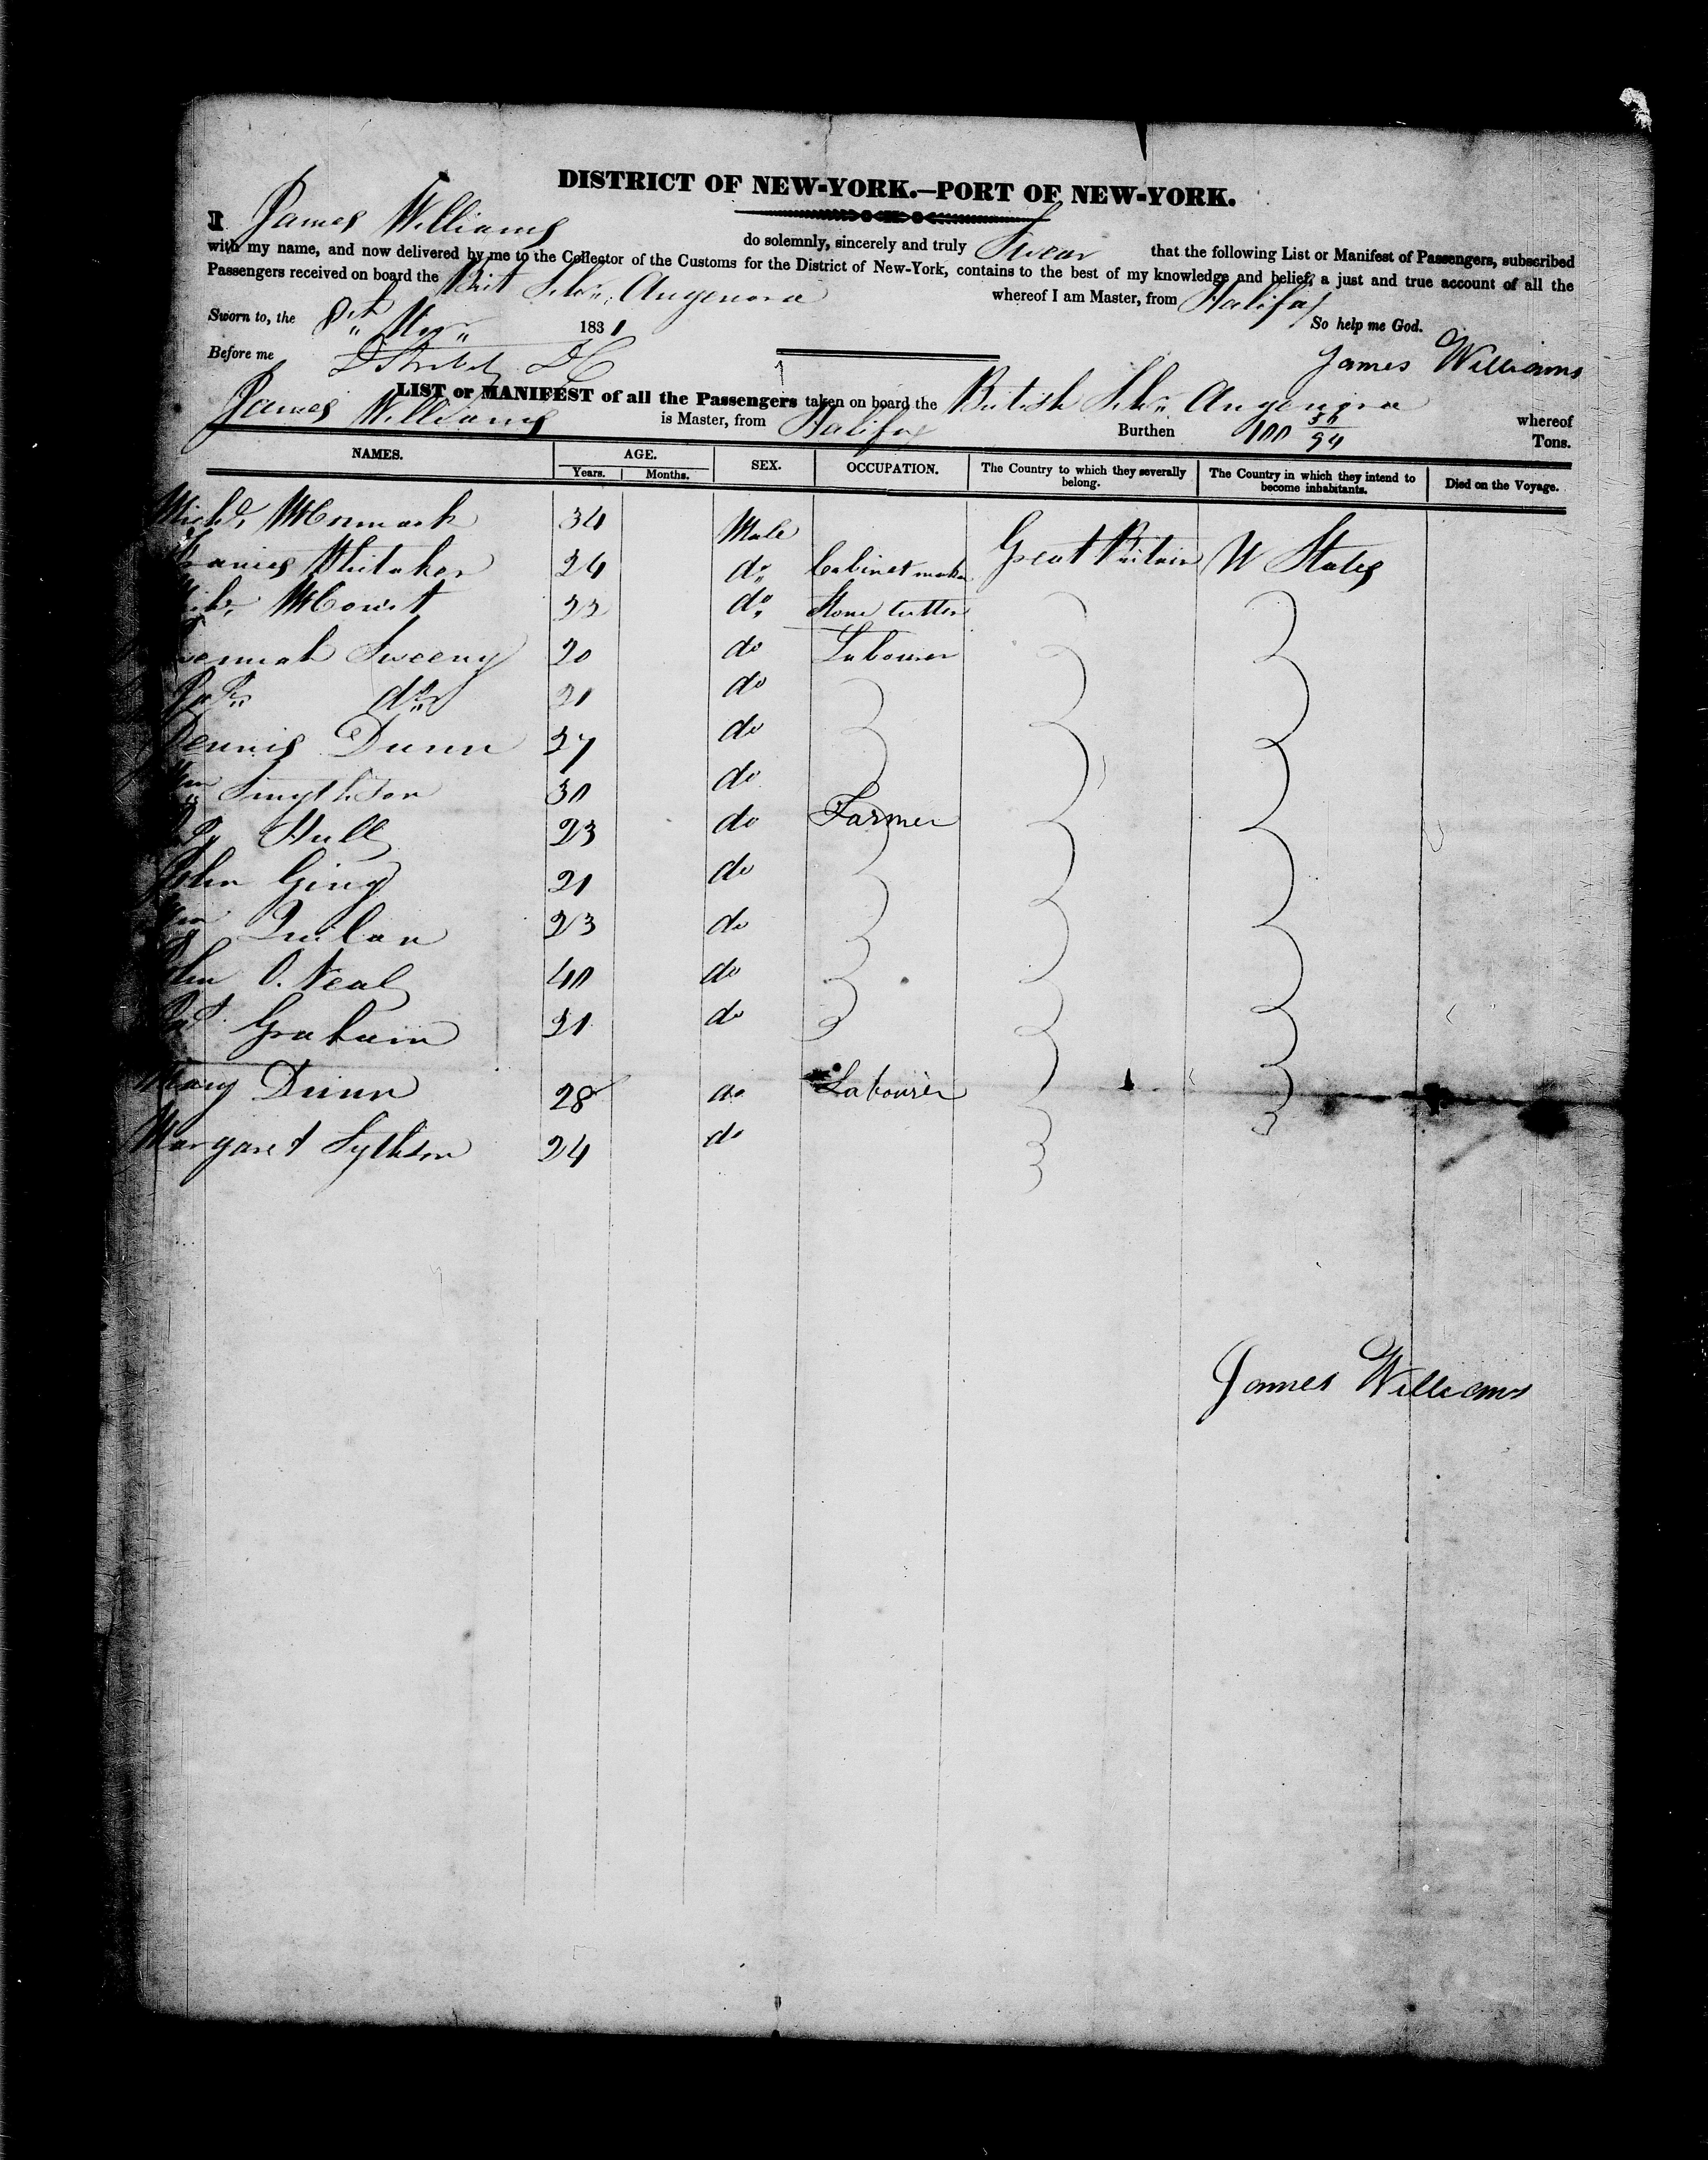 DISTRICT OF NEW-YORK.—PORT OF NEW-YORK.
I James Williams do solemnly, sincerely and truly Swear that the following List or Manifest of Passengers, subscribed
with my name, and now delivered by me to the Collector of the Customs for the District of New-York, contains to the best of my knowledge and belief, a just and true account of all the
Passengers received on board the Brit Schr. Angenora whereof I am Master, from Halifax
Sworn to, the 8th 1831 So help me God.
Before me James Williams
LIST or MANIFEST of all the Passengers taken on board the British Schr Angenora whereof
James Williams is Master, from Halifax Burthen 100 Tons.
NAMES. AGE. SEX. OCCUPATION. The Country to which they severally belong. The Country in which they intend to become inhabitants. Died on the Voyage.
Years. Months.
Michl. McCormack 34 Male Great Britain U States
Whitaker 24 do Cabinet maker
McCourt 22 do. Stone Cutter
Sweeny 20 do Labourer
do 21 do
Dennis Dunn 27 do
Wm Smythson 30 do
Hull 23 do Farmer
John Ging 21 do
Wm Quilan 23 do
John O.Neal 40 do
Pat Graham 21 do
Mary Dunn 28 do Labourer
Margaret Sythson 24 do
James Williams